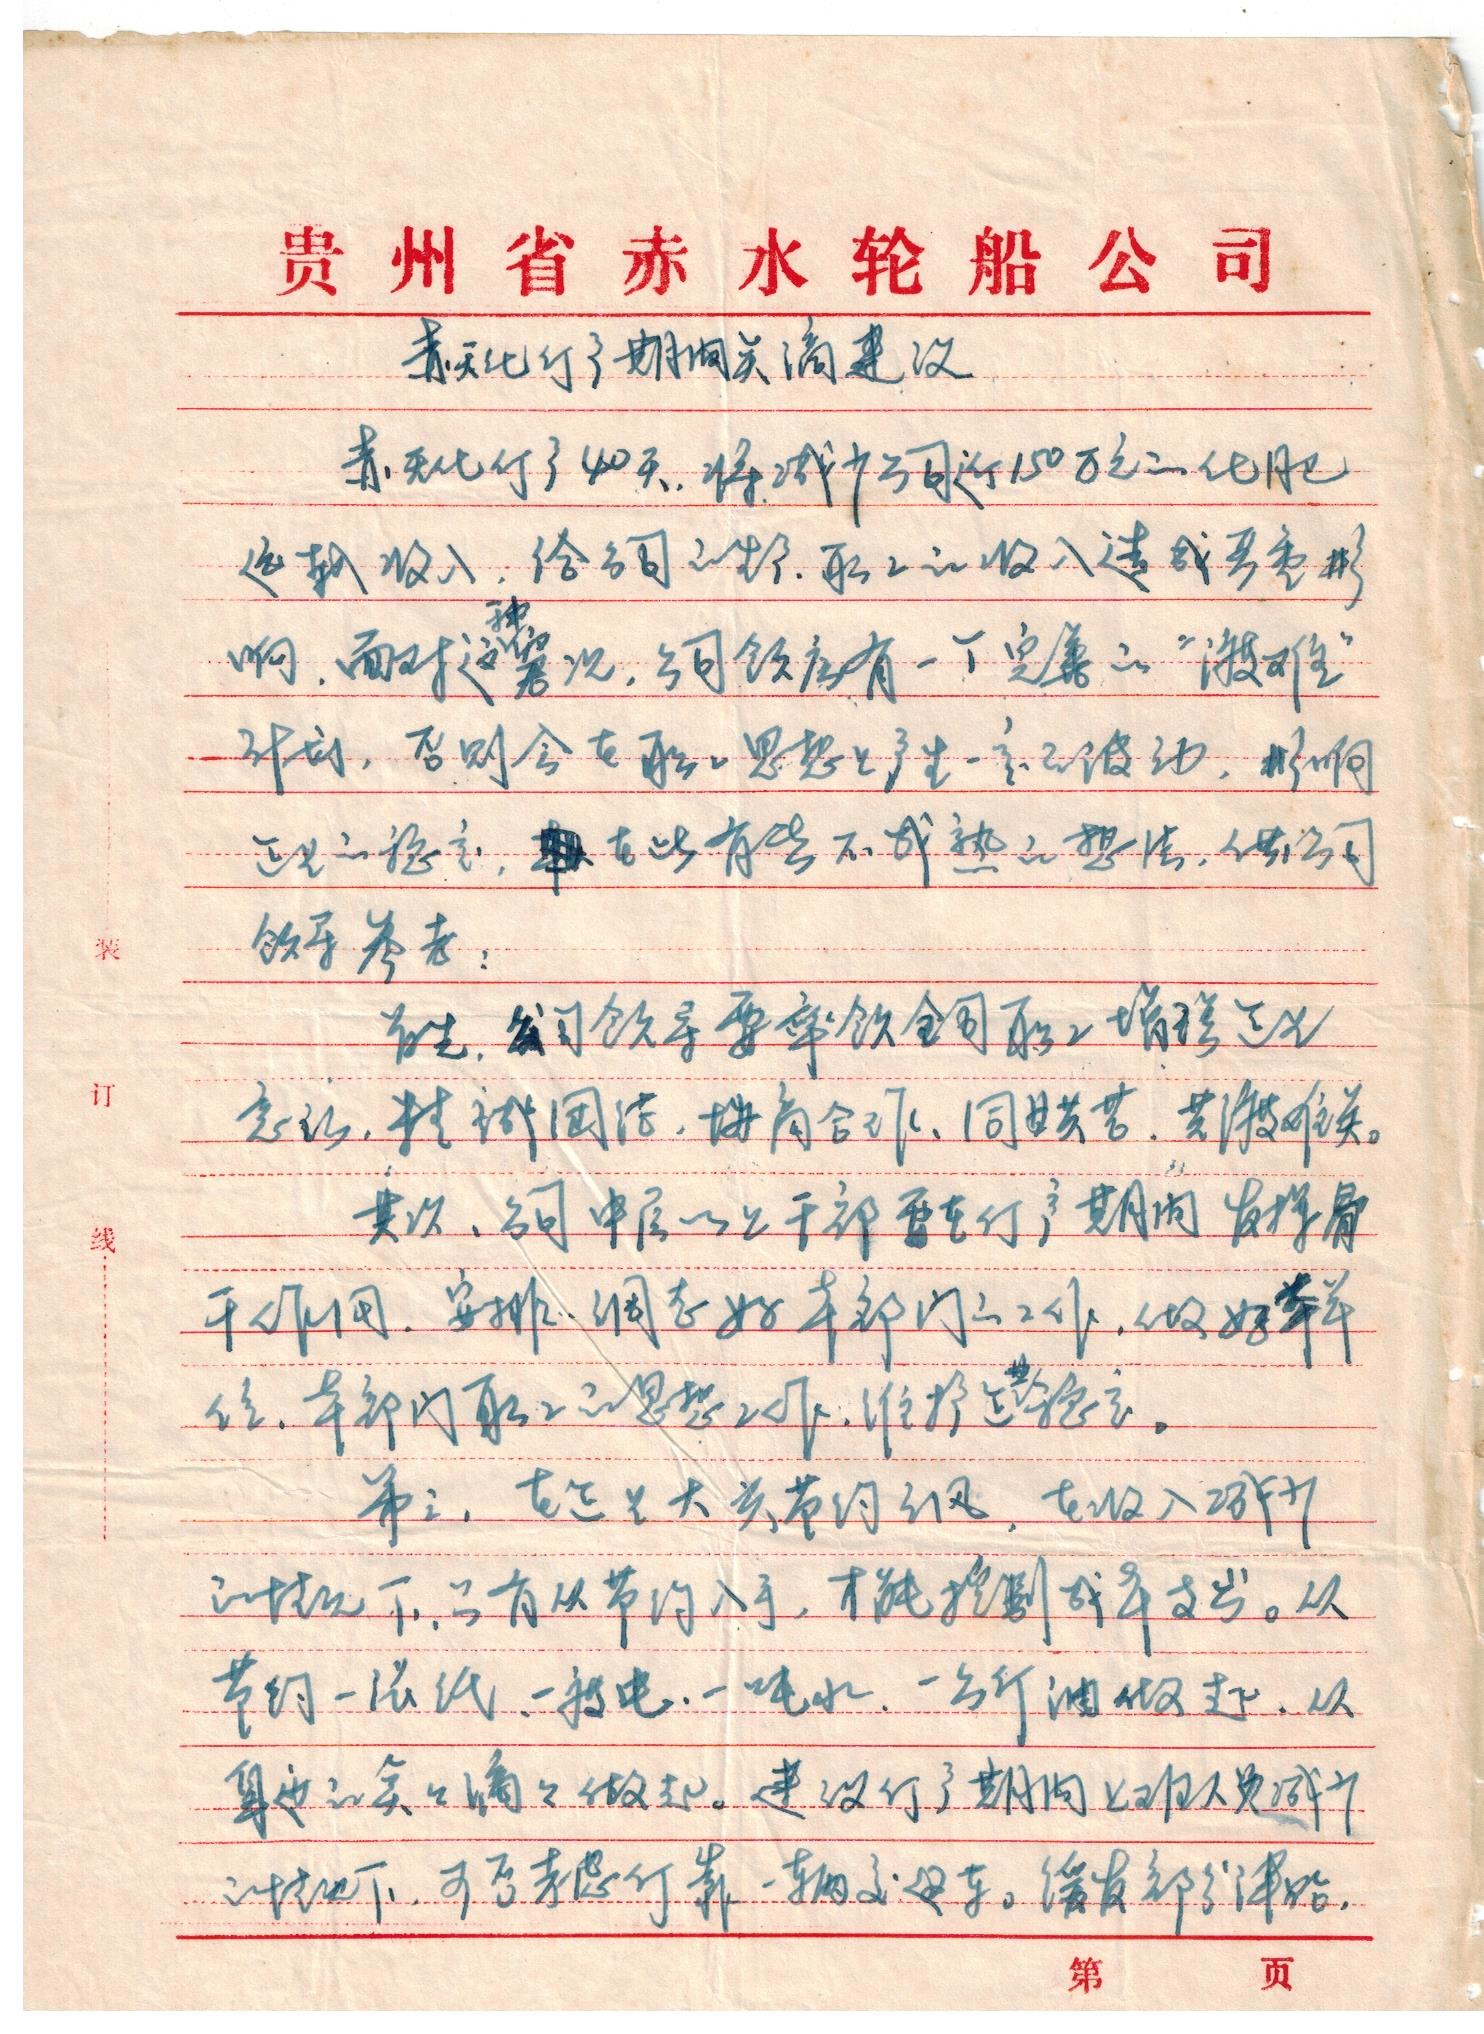 贵州省赤水轮船公司
赤天化停产期间关停建议
赤天化停产40天，将减少公司近150万元的化肥
运输收入，给公司的生产、职工的收入造成严重影
响，面对这种窘况，公司领应有一个完善的“渡难”
计划，否则会在职工思想上产生一定的波动，影响
企业的稳定，在此有些不成熟的想法，供公司
领导参考：
首先，公司领导要率领全司职工增强企业
意识，精诚团结，协商合作、同甘共苦，共渡难关。
其次，公司中层以上干部要在停产期间发挥骨
干作用，安排、调整好本部门的工作，做好本单
位、本部门职工的思想工作，维护企业稳定。
第三，在企业大兴节约之风，在收入减少
的情况下，只有从节约入手，才能控制成本支出。从
节约一张纸、一度电、一吨水、一公斤油做起，从
身边的点点滴滴做起。建议停产期间上班人员减少
的情况下，可否考虑停靠一辆交通车。缓发部分津贴，
装
订
线
第 页